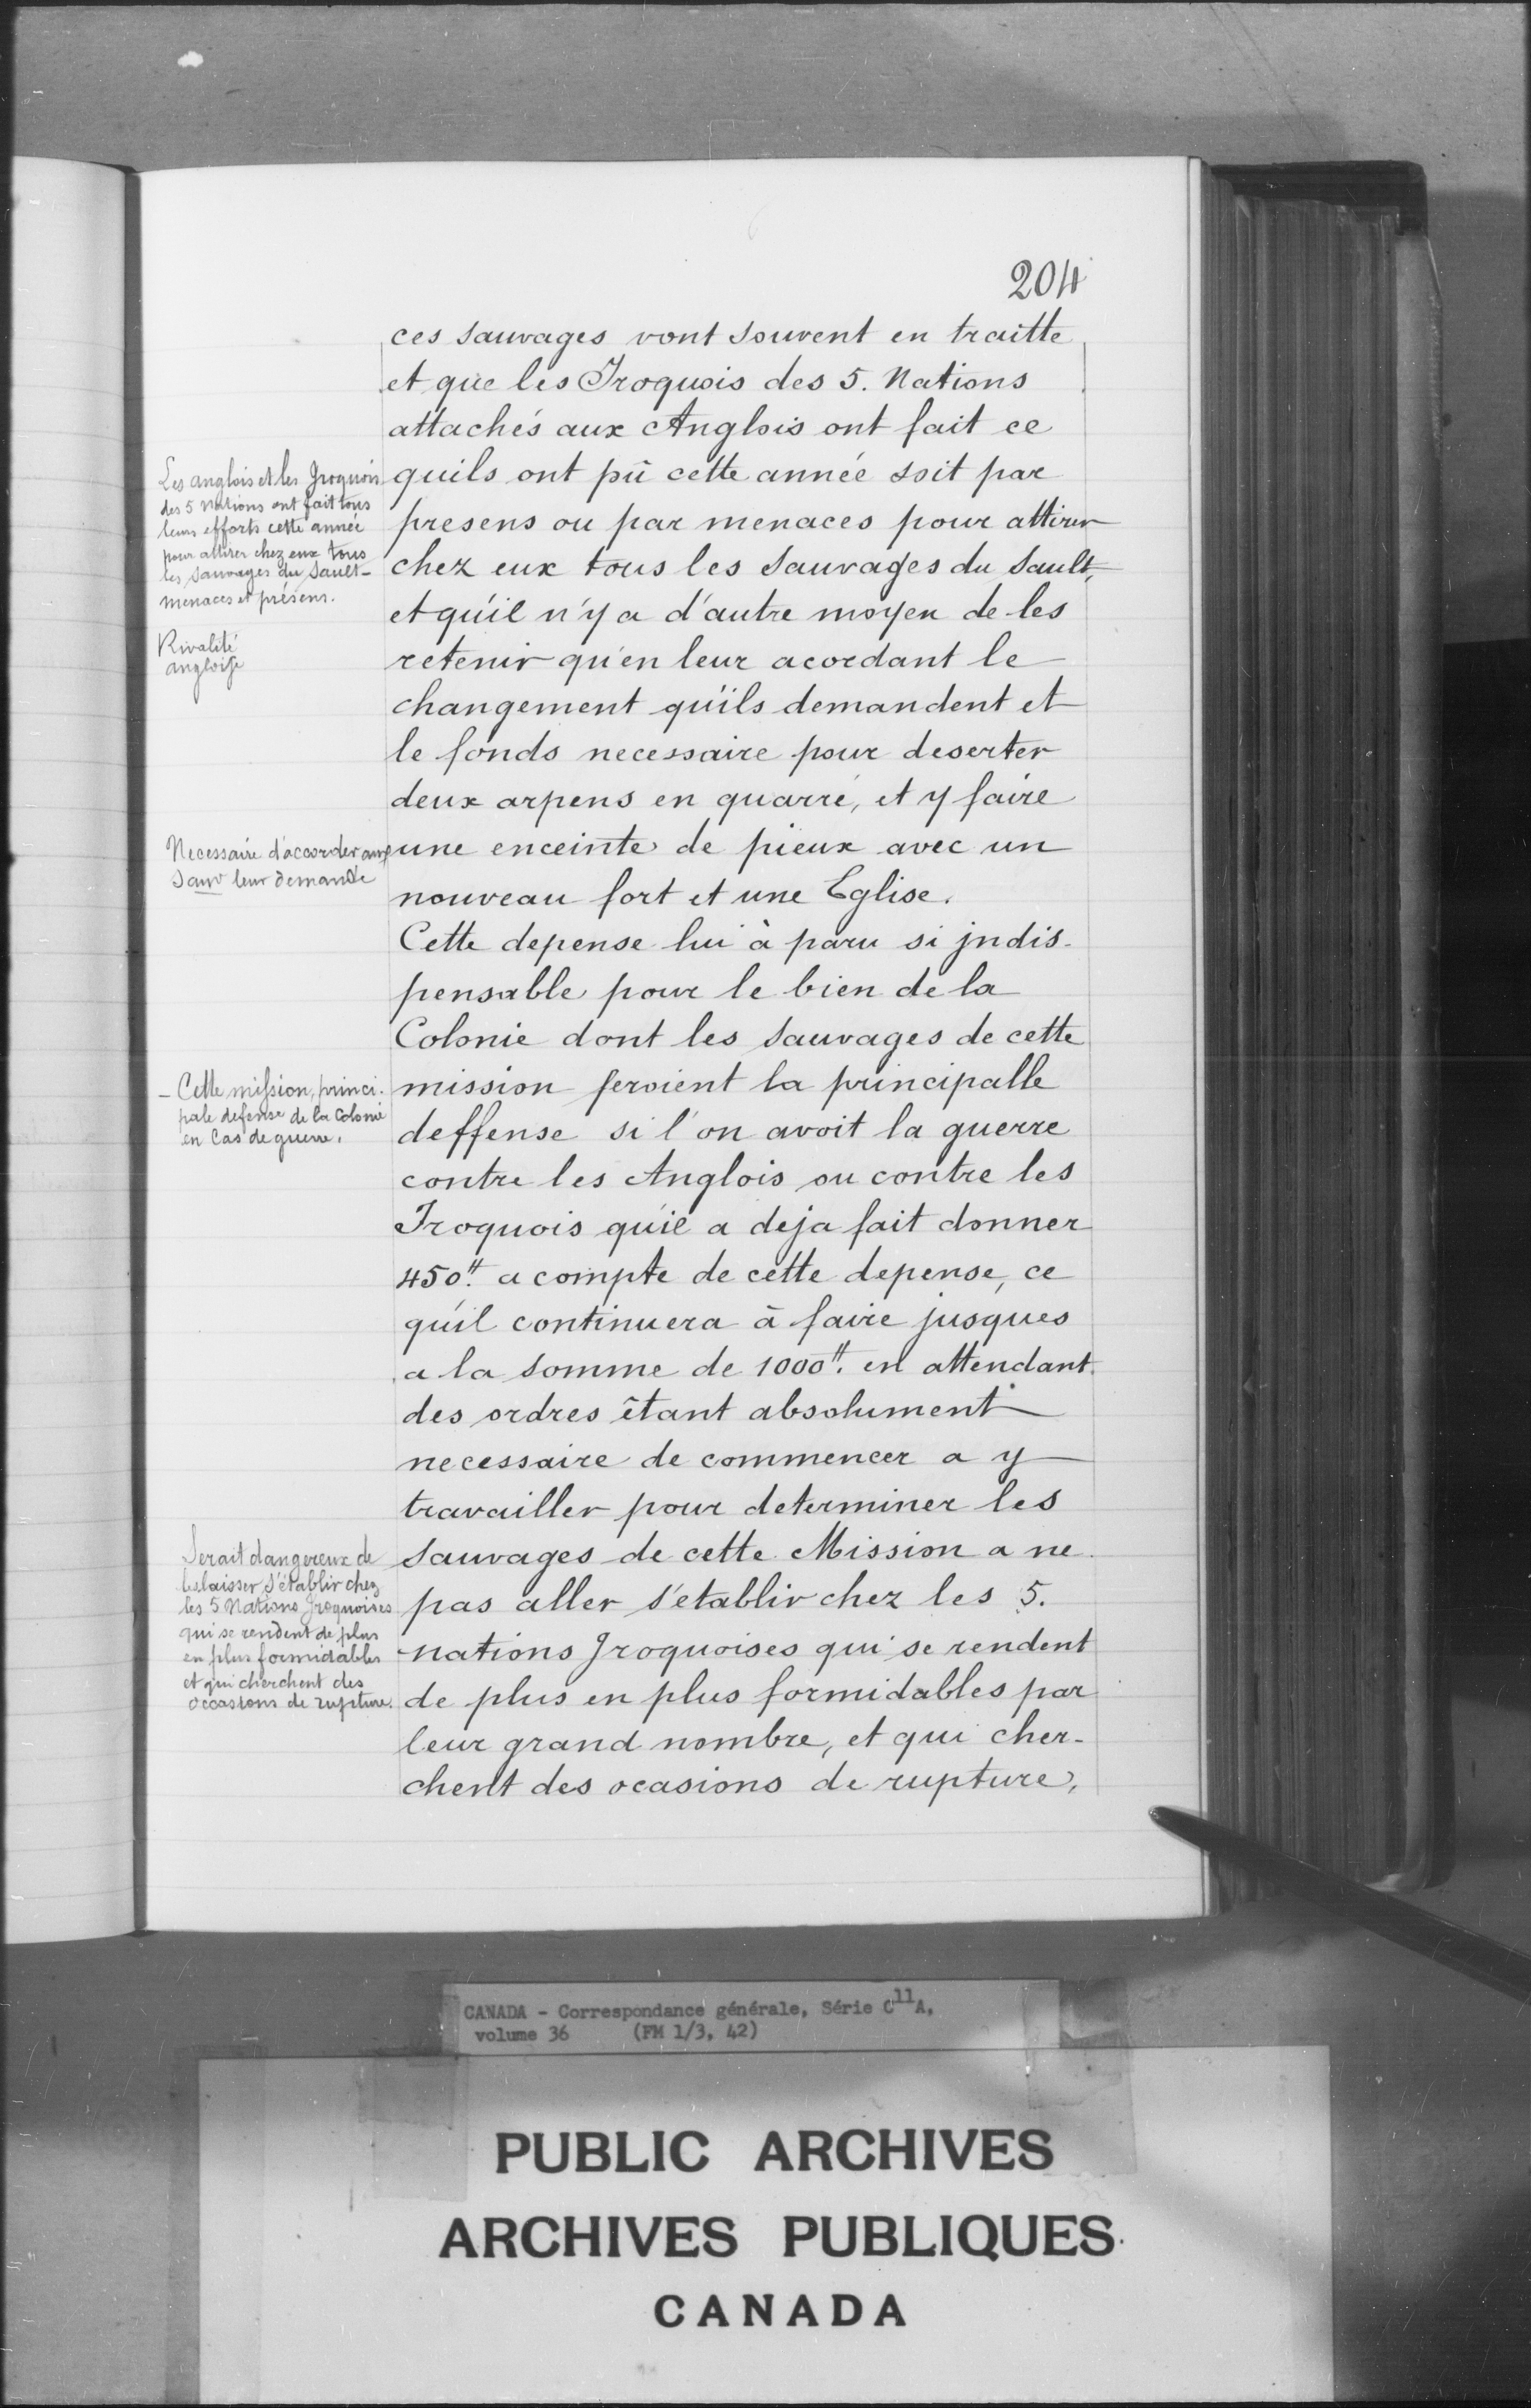 204
ces sauvages vont souvent en traitte
et que les Iroquois des 5. Nations
attachés aux Anglois ont fait ce
quils ont pû cette année soit par
presens ou par menaces pour attirer
chez eux tous les sauvages du Sault,
et qu'il n'y a d'autre moyen de les
retenir qu'en leur acordant le
changement qu'ils demandent et
le fonds necessaire pour deserter
deux arpens en quarré, et y faire
une enceinte de pieux avec un
nouveau fort et une Eglise.
Cette depense lui à paru si jndis-
pensable pour le bien de la
Colonie dont les sauvages de cette
mission feroient la principalle
deffense si l'on avoit la guerre
contre les Anglois ou contre les
Iroquois qu'il a deja fait donner
450ᵗᵗ a compte de cette depense, ce
qu'il continuera à faire jusques
a la somme de 1000ᵗᵗ. en attendant
des ordres êtant absolument
necessaire de commencer a y
travailler pour determiner les
sauvages de cette Mission a ne
pas aller s'etablir chez les 5.
nations Iroquoises qui se rendent
de plus en plus formidables par
leur grand nombre, et qui cher-
chent des ocasions de rupture,
Les anglois et les Iroquois
des 5 nations ont fait tous
leurs efforts cette année
pour attirer chez eux tous
les sauvages du Sault-
menaces et présens.
Rivalité
angloise
Necessaire d'accorder aux
Sauv leur demande
- Cette mission, princi-
pale defense de la Colonie
en Cas de guerre.
Serait dangereux de
les laisser s'établir chez
les 5 Nations Iroquoises
qui se rendent de plus
en plus formidables
et qui cherchent des
occasions de rupture.
CANADA - Correspondance générale, Série C11A,
volume 36 (FM 1/3, 42)
PUBLIC ARCHIVES
ARCHIVES PUBLIQUES
CANADA